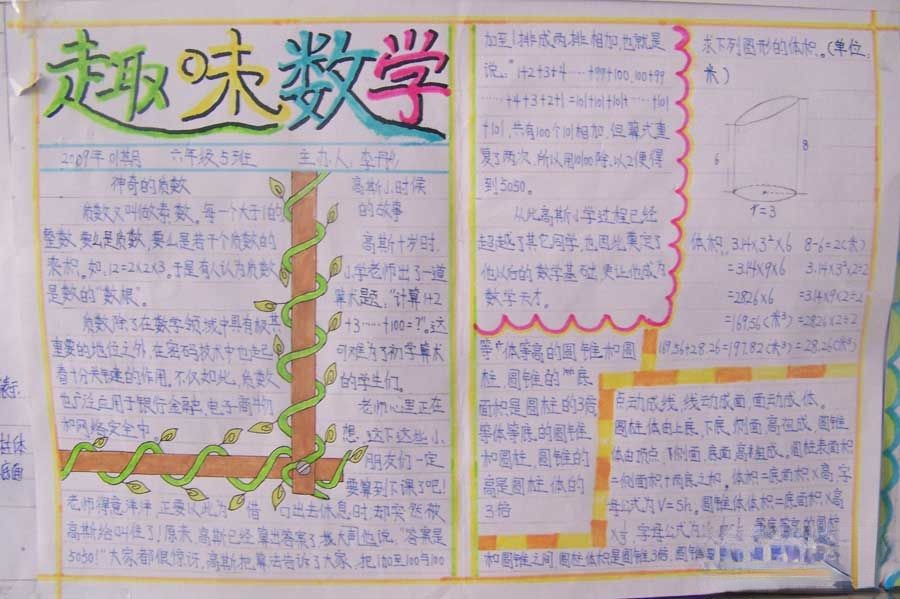 趣味数学
2009年01期 六年级5班 主办人：李
神奇的质数
质数又叫做素数。每一个大于1的
整数，要么是质数，要么是若干个质数的
乘积。如：12=2×2×3。于是有人认为质数
是数的“数根”。
质数除了在数学领域中具有极其
重要的地位之外，在密码技术中也起
着十分关键的作用。不仅如此，质数
也广泛应用于银行金融，电子商物
和网络安全中。
高斯小时候
的故事
高斯十岁时，
小学老师出了一道
算术题：“计算1+2
+3……+100=?”。这
可难为了初学算术
的学生们。
老师心里正在
想，这下这些小
朋友们一定
要算到下课了吧！
老师得意洋洋，正要从此为借口出去休息时，却突然被
高斯给叫住了！原来，高斯已经算出答案了，拨大同也说，“答案是
5050！”大家都很惊讶，高斯把算法告诉了大家，把1加至100与100
加至1排成两排相加，也就是
说：“1+2+3+4……+99+100，100+99
……+4+3+2+1=101+101+101+……+101
+101，共有100个101相加，但算式重
复了两次，所以用10100除以2便得
到5050。
从此高斯小学过程已经
超越了其它同学，也因此奠定了
他以后的数学基础，更让他成为
数学天才。
求下列图形的体积。（单位：
米）
6
8
r=3
体积：3.14×3²×6 8-6=2(米)
=3.14×9×6 3.14×3²×2÷2
=28.26×6 =3.14×9×2÷2
=169.56(米³) =28.26×2÷2
169.56+28.26=197.82(米³) =28.26(米³)
等体等高的圆锥和圆
柱，圆锥的底
面积是圆柱的3倍，
等体等底的圆锥
和圆柱，圆锥的
高是圆柱体的
3倍
点动成线，线动成面，面动成体。
圆柱体由上底、下底、侧面、高组成，圆锥
体由顶点、侧面、底面、高组成。圆柱表面积
=侧面积+两底之和。体积=底面积×高，字
母公式为V=Sh。圆锥体体积=底面积×高
×⅓，字母公式为 等底等高的圆柱
和圆锥之间，圆柱体积是圆锥3倍，圆锥